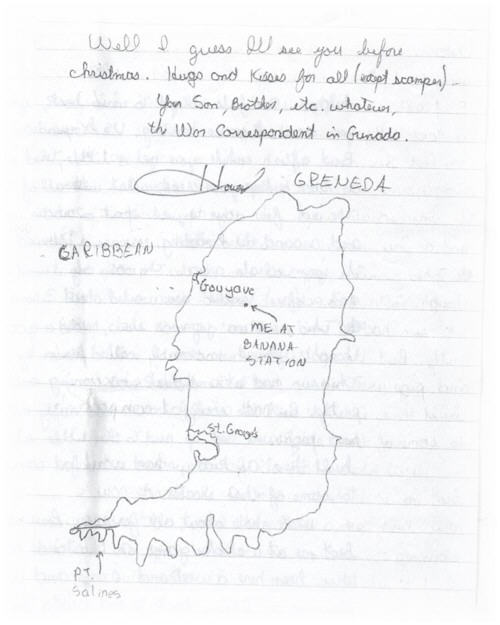 Well I guess I'll see you before
christmas. Hugs and Kisses for all (except scamper).
Your Son, Brother, etc. whatever,
the War Correspondent in Grenada.
GRENEDA
CARIBBEAN
Gouyave
ME AT
BANANA
STATION
St. Georges
PT.
Salines